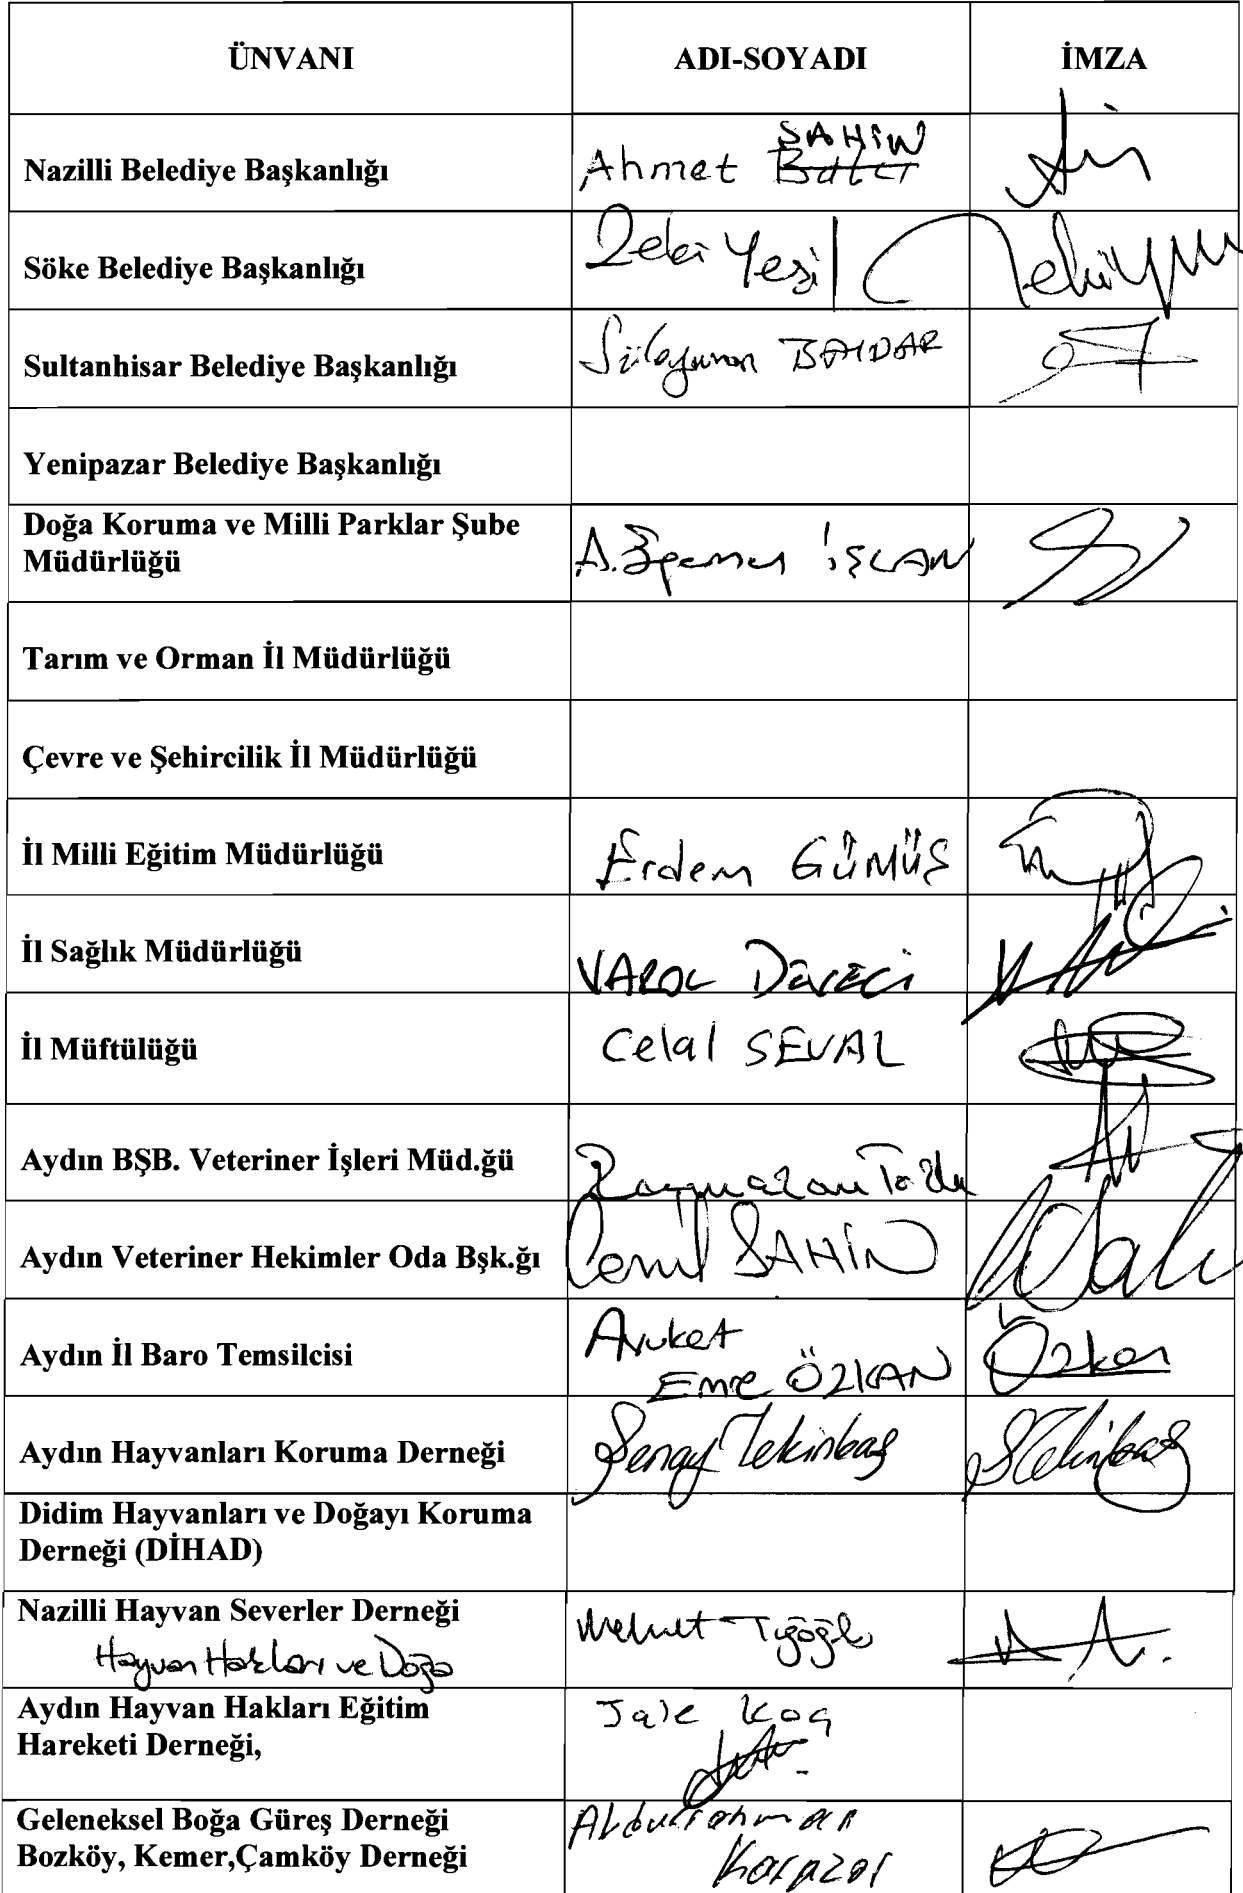 ÜNVANI ADI-SOYADI İMZA
Nazilli Belediye Başkanlığı Ahmet SAHİN
Söke Belediye Başkanlığı Zeki Yeşil
Sultanhisar Belediye Başkanlığı Süleyman
Yenipazar Belediye Başkanlığı
Doğa Koruma ve Milli Parklar Şube
Müdürlüğü A. İŞCAN
Tarım ve Orman İl Müdürlüğü
Çevre ve Şehircilik İl Müdürlüğü
İl Milli Eğitim Müdürlüğü Erdem GÜMÜŞ
İl Sağlık Müdürlüğü VAROL DEVECİ
İl Müftülüğü Celal SEVAL
Aydın BŞB. Veteriner İşleri Müd.ğü
Aydın Veteriner Hekimler Oda Bşk.ğı Cemil SAHİN
Aydın İl Baro Temsilcisi Avukat
Emre ÖZKAN Özkan
Aydın Hayvanları Koruma Derneği Şenay Tekinbaş STekinbaş
Didim Hayvanları ve Doğayı Koruma
Derneği (DİHAD)
Nazilli Hayvan Severler Derneği Mehmet
Hayvan Hakları ve Doğa
Aydın Hayvan Hakları Eğitim Jale Koç
Hareketi Derneği,
Geleneksel Boğa Güreş Derneği Abdurrahman
Bozköy, Kemer,Çamköy Derneği